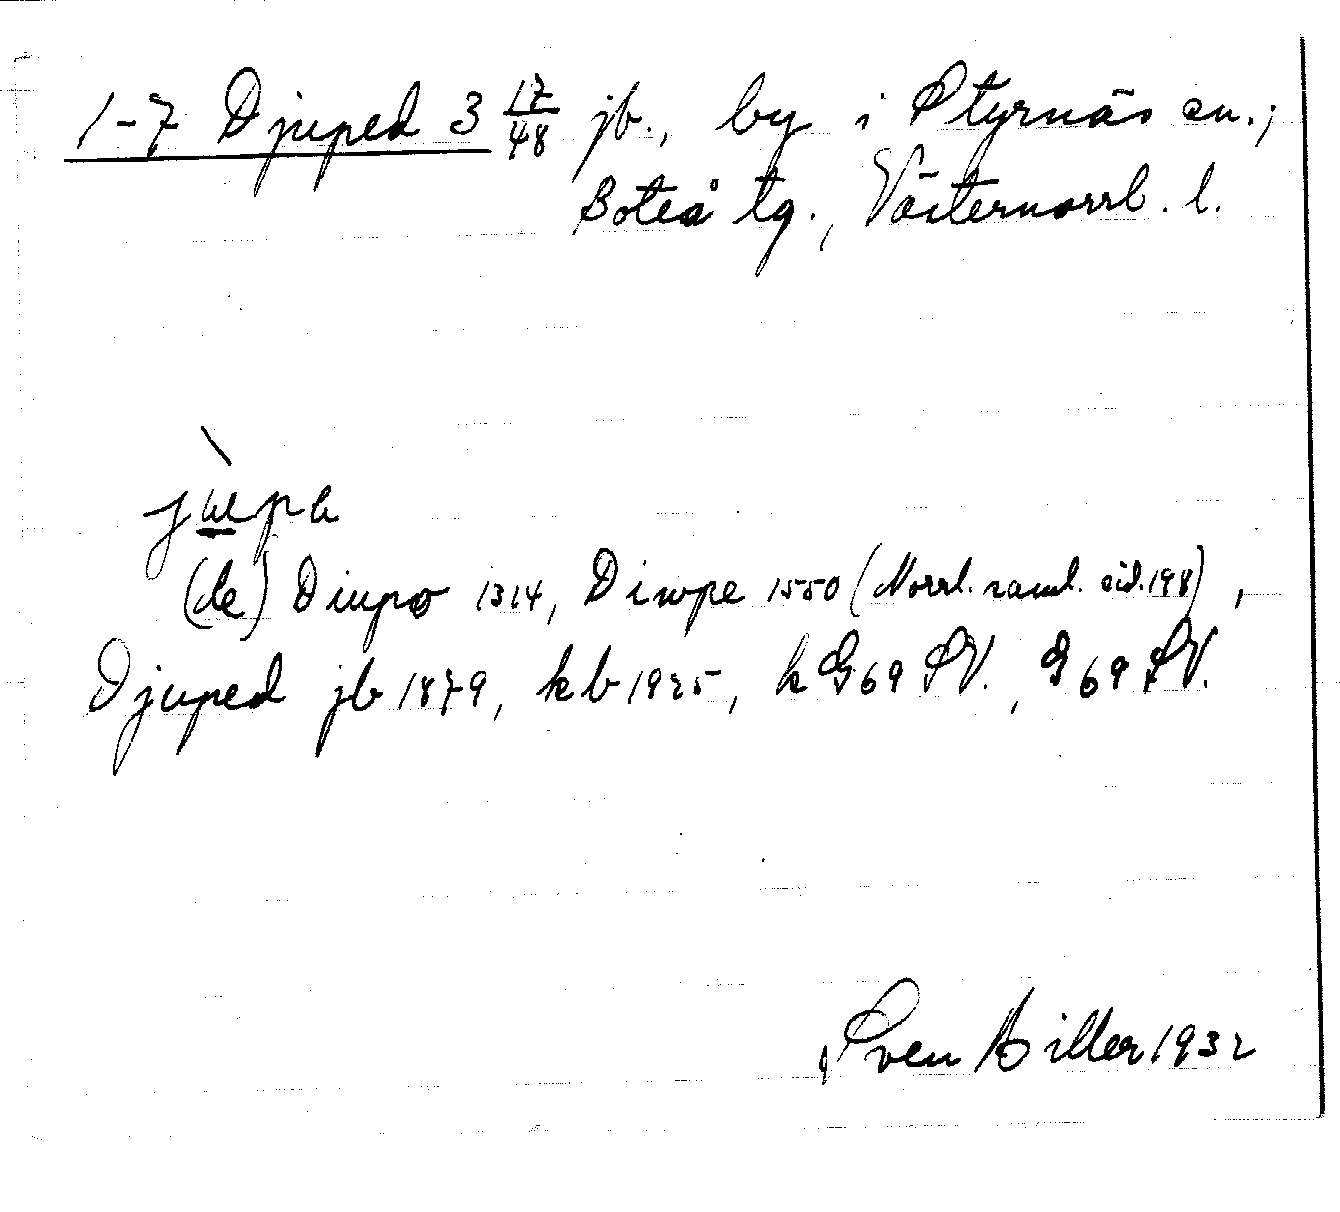 1-7 Djuped 3 17/48 jb., by i Styrnäs sn.;
Boteå tg., Västernorrl. l.
(de) Diupo 1314, Diwpe 1550 (Norrl. saml. sid. 198),
Djuped jb 1879, kb 1925, k G69 SV., G 69 SV.
Sven Hiller 1932